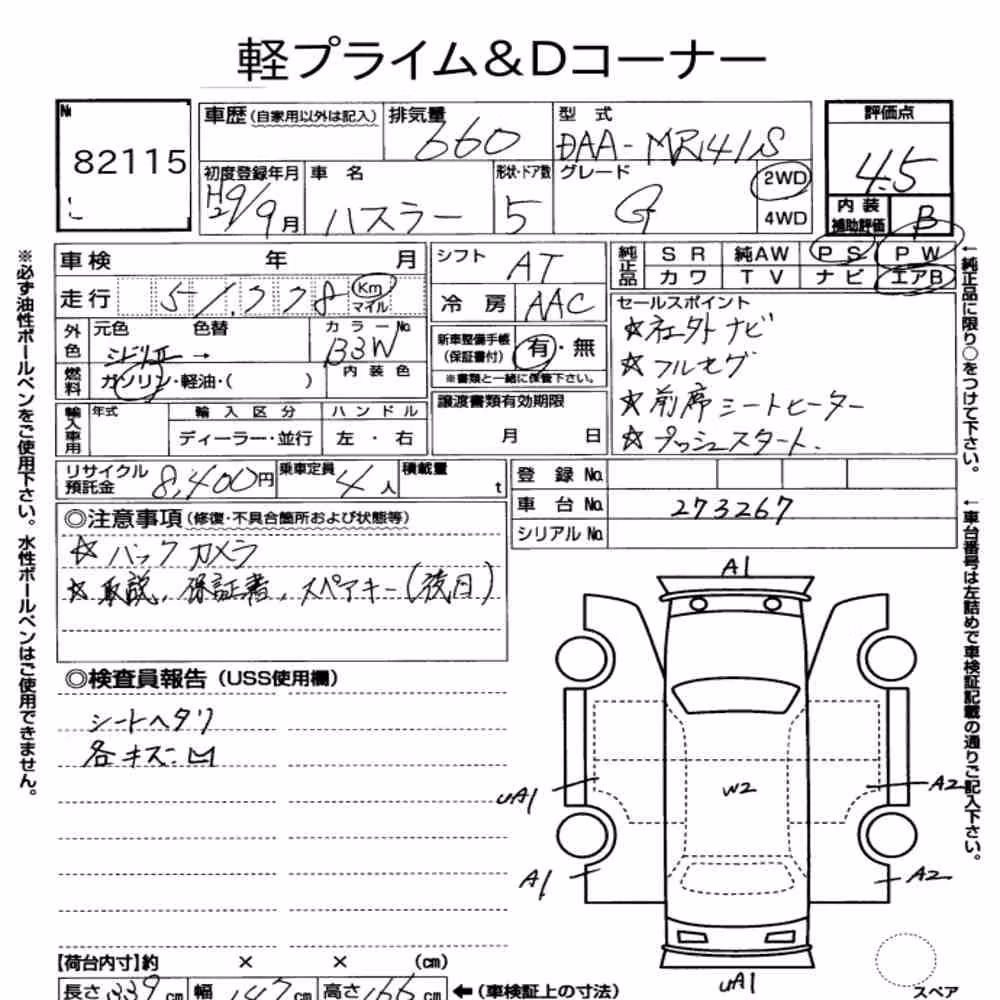 軽プライム&Dコーナー
№ 82115
車歴 (自家用以外は記入)
排気量 660
型式 DAA-MR41S
評価点 4.5
内装補助評価 B
初度登録年月 H29/9月
車名 ハスラー
形状・ドア数 5
グレード G
2WD
4WD
車検 年 月
走行 51,778 Km マイル
シフト AT
冷房 AAC
純正品 SR 純AW PS PW
カワ TV ナビ エアB
外色 元色 色替
→
カラーNo. B3W
内装色
燃料 ガソリン・軽油・( )
新車整備手帳(保証書付) 有・無
※書類と一緒に保管下さい。
輸入車用 年式 輸入区分 ハンドル
ディーラー・並行 左・右
譲渡書類有効期限
月 日
セールスポイント
☆社外ナビ
☆フルセグ
☆前席シートヒーター
☆プッシュスタート.
リサイクル預託金 8,400円
乗車定員 4人
積載量 t
登録No.
車台No. 273267
シリアルNo.
◎注意事項 (修復・不具合箇所および状態等)
☆バックカメラ
☆取説、保証書、スペアキー(後日)
◎検査員報告 (USS使用欄)
シートヘタリ
各キズ・凹
A1
W2
uA1
A2
A1
A2
uA1
【荷台内寸】約 × × (cm)
長さ 339cm 幅 147cm 高さ 166cm ←(車検証上の寸法)
スペア
※必ず油性ボールペンをご使用下さい。水性ボールペンはご使用できません。
←純正品に限り○をつけて下さい。
←車台番号は左詰めで車検証記載の通りご記入下さい。